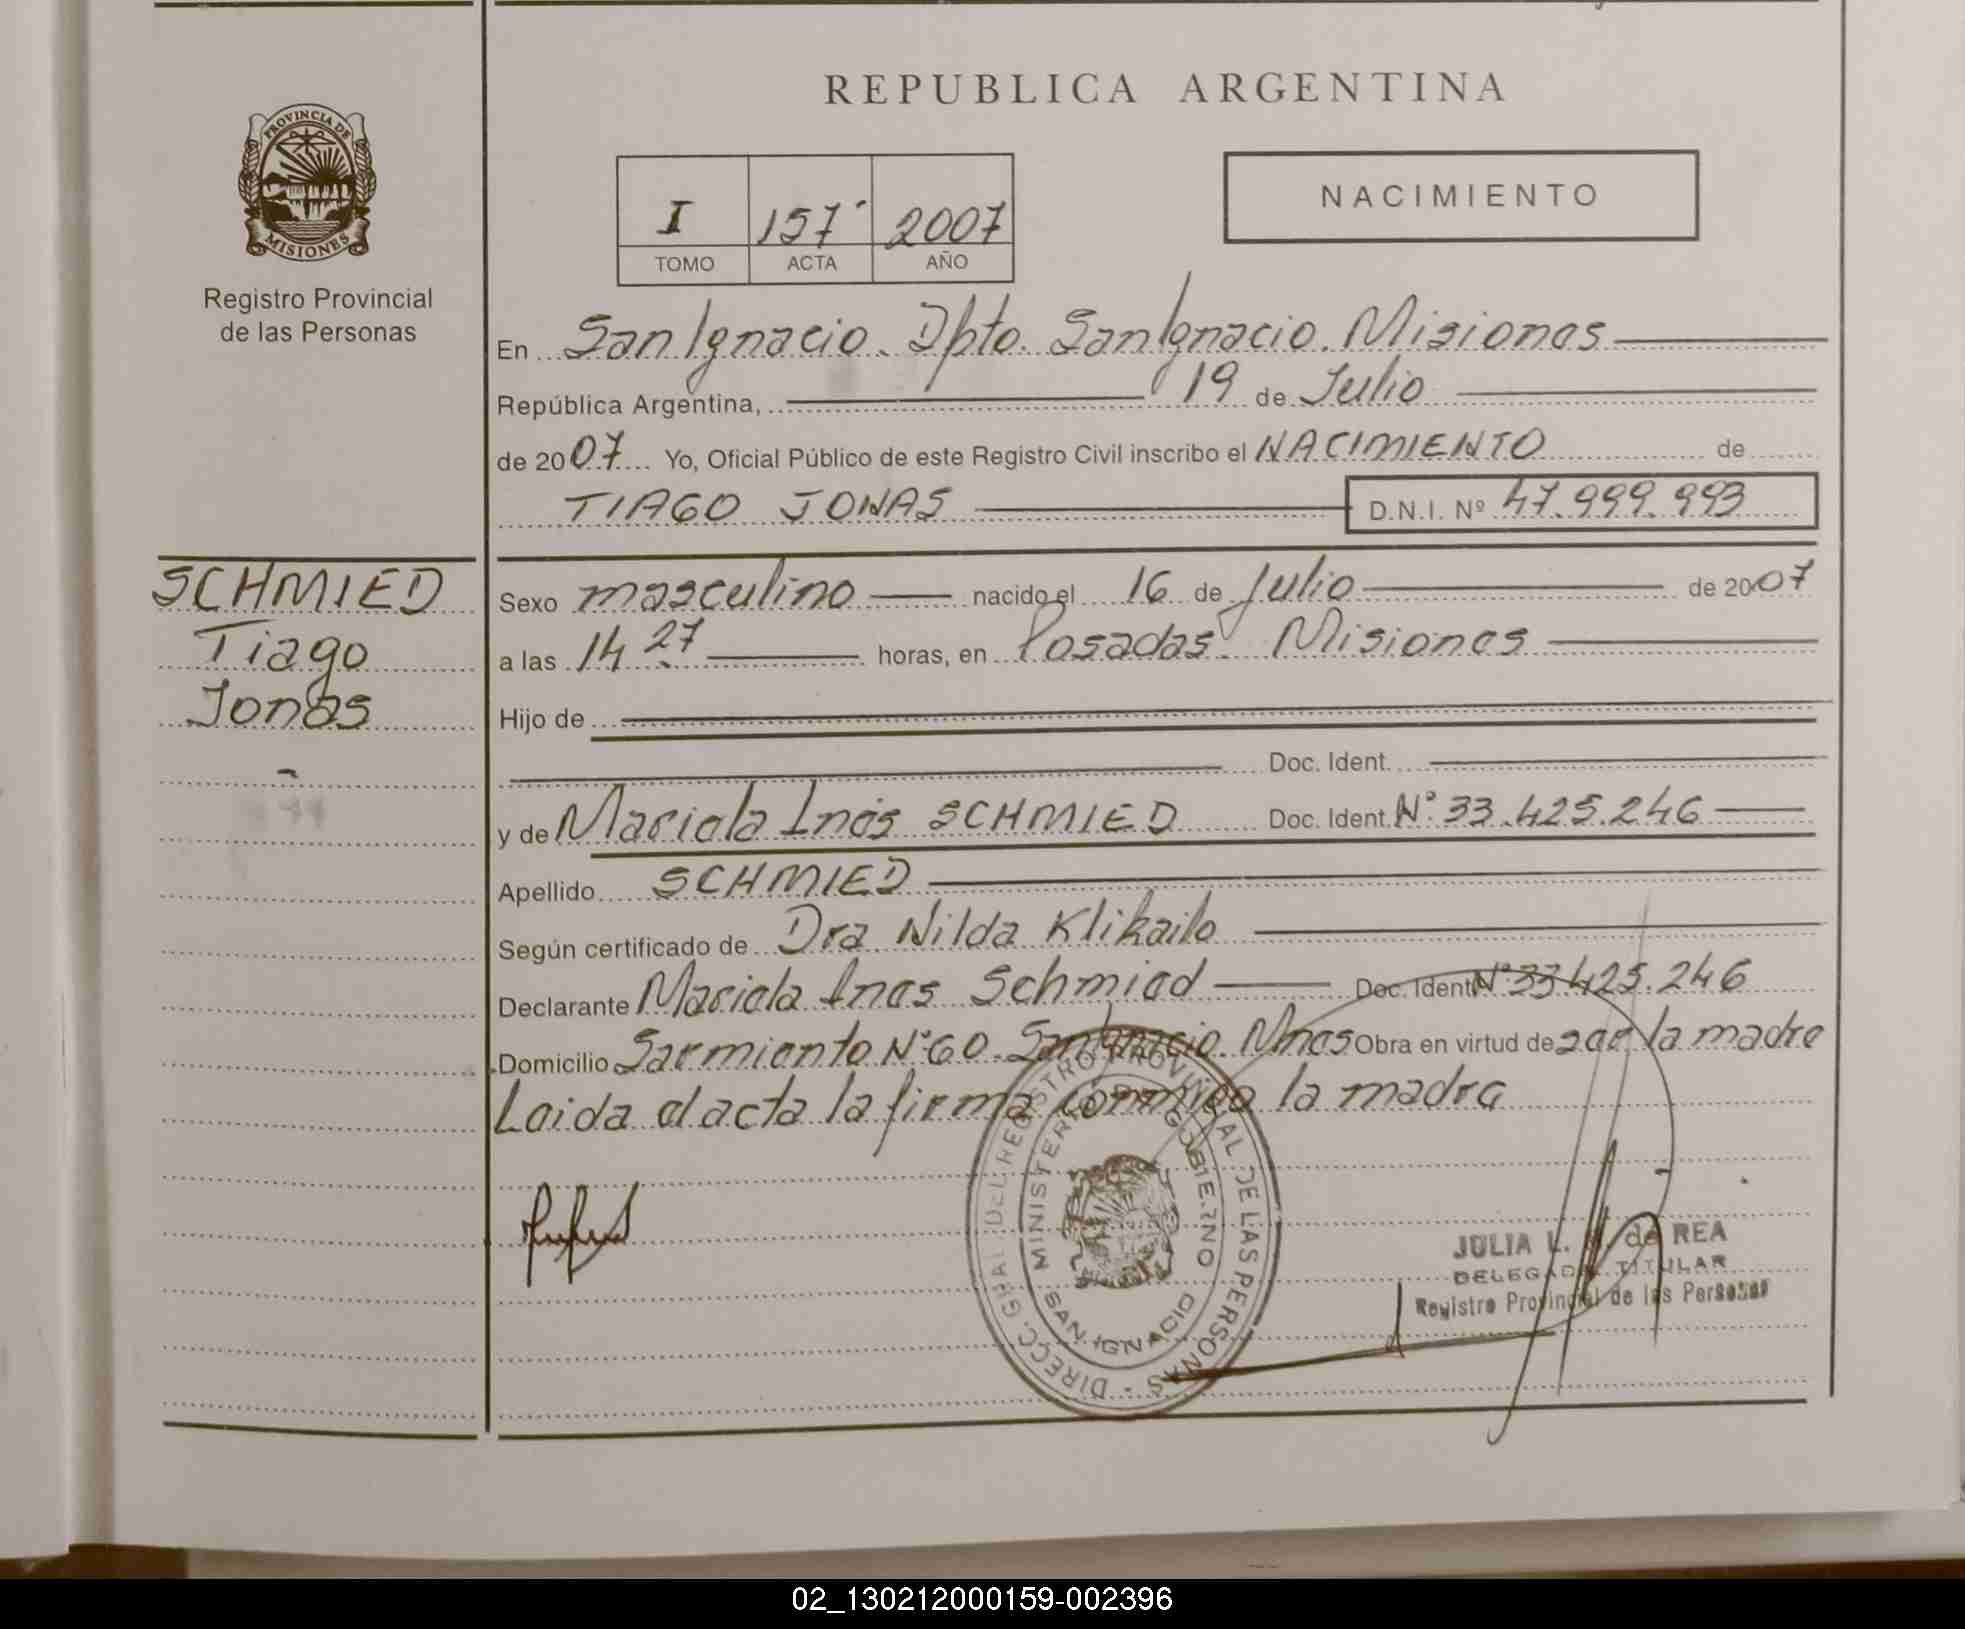 REPUBLICA ARGENTINA
PROVINCIA DE
MISIONES
Registro Provincial
de las Personas
I 157 2007
TOMO ACTA AÑO
NACIMIENTO
En San Ignacio. Dpto. San Ignacio. Misiones
República Argentina, 19 de Julio
de 2007 Yo, Oficial Público de este Registro Civil inscribo el NACIMIENTO de
TIAGO JONAS D.N.I. Nº 47.999.993
SCHMIED
Tiago
Jonas
Sexo masculino nacido el 16 de Julio de 2007
a las 14 27 horas, en Posadas. Misiones
Hijo de
Doc. Ident.
y de Mariela Inés SCHMIED Doc. Ident. Nº 33.425.246
Apellido SCHMIED
Según certificado de Dra Nilda Klikailo
Declarante Mariela Ines Schmied Doc. Ident Nº 33425.246
Domicilio Sarmiento Nº 60. San Ignacio. Mnes Obra en virtud de ser la madre
Leida el acta la firma conmigo la madre
DIRECC. GRAL DEL REGISTRO PROVINCIAL DE LAS PERSONAS
MINISTERIO GOBIERNO
SAN IGNACIO
JULIA L. de REA
DELEGADA TITULAR
Registro Provincial de las Personas
02_130212000159-002396